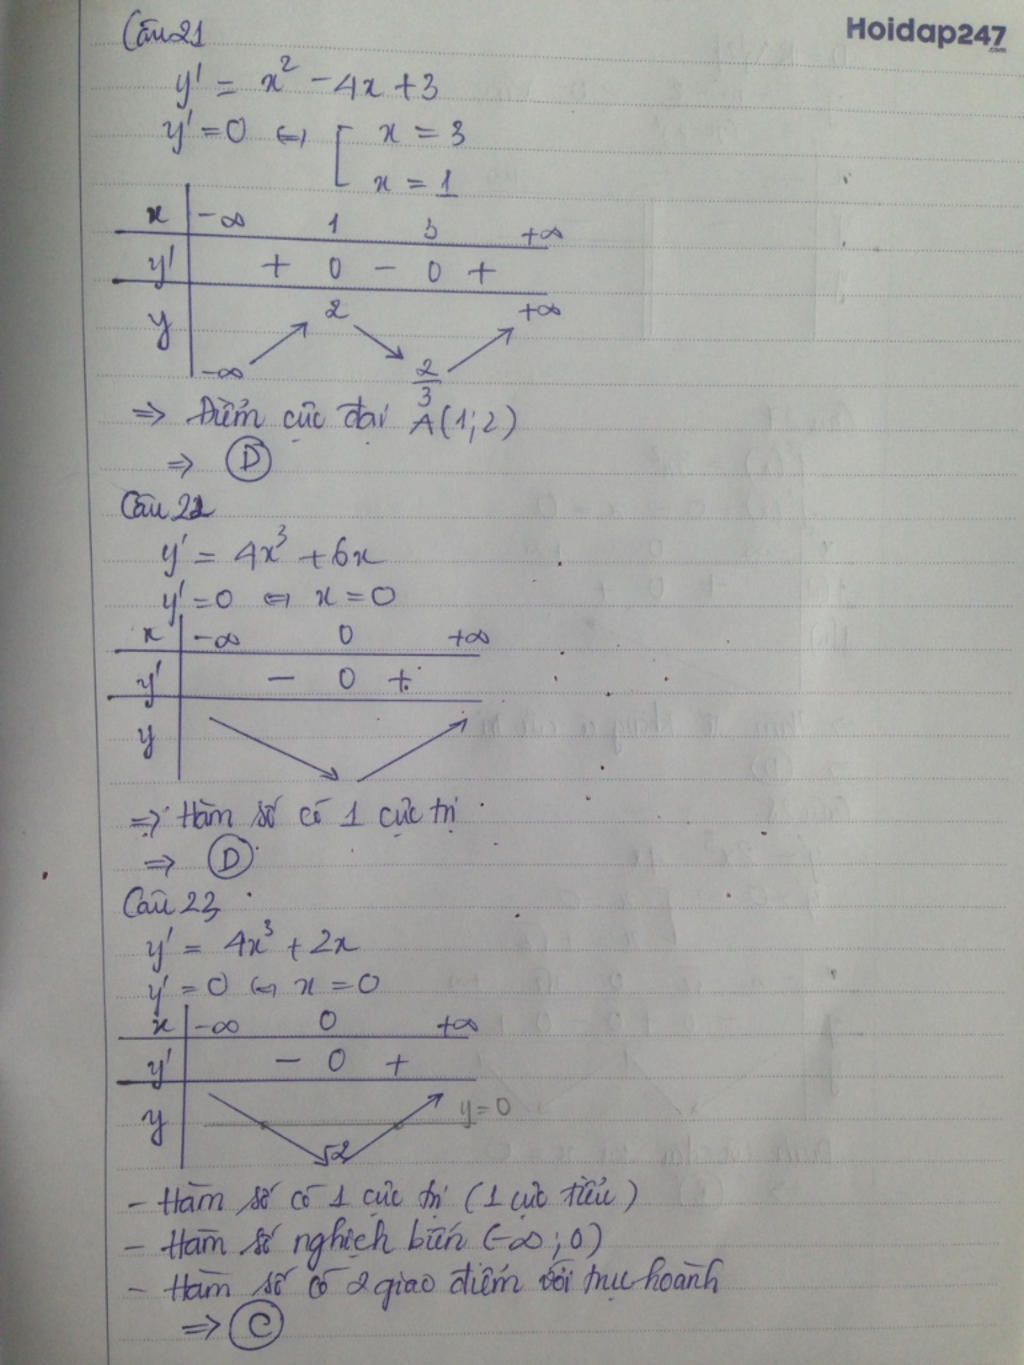 Hoidap247
.com
Câu 21
y' = x² - 4x + 3
y' = 0 ⇔ [ x = 3
x = 1
x -∞ 1 3 +∞
y' + 0 - 0 +
y 2 +∞
-∞ 2/3
⇒ Điểm cực đại A(1;2)
⇒ D
Câu 22
y' = 4x³ + 6x
y' = 0 ⇔ x = 0
x -∞ 0 +∞
y' - 0 +
y
⇒ Hàm số có 1 cực trị
⇒ D
Câu 23
y' = 4x³ + 2x
y' = 0 ⇔ x = 0
x -∞ 0 +∞
y' - 0 +
y y=0
-2
- Hàm số có 1 cực trị (1 cực tiểu)
- Hàm số nghịch biến (-∞;0)
- Hàm số có 2 giao điểm với trục hoành
⇒ C